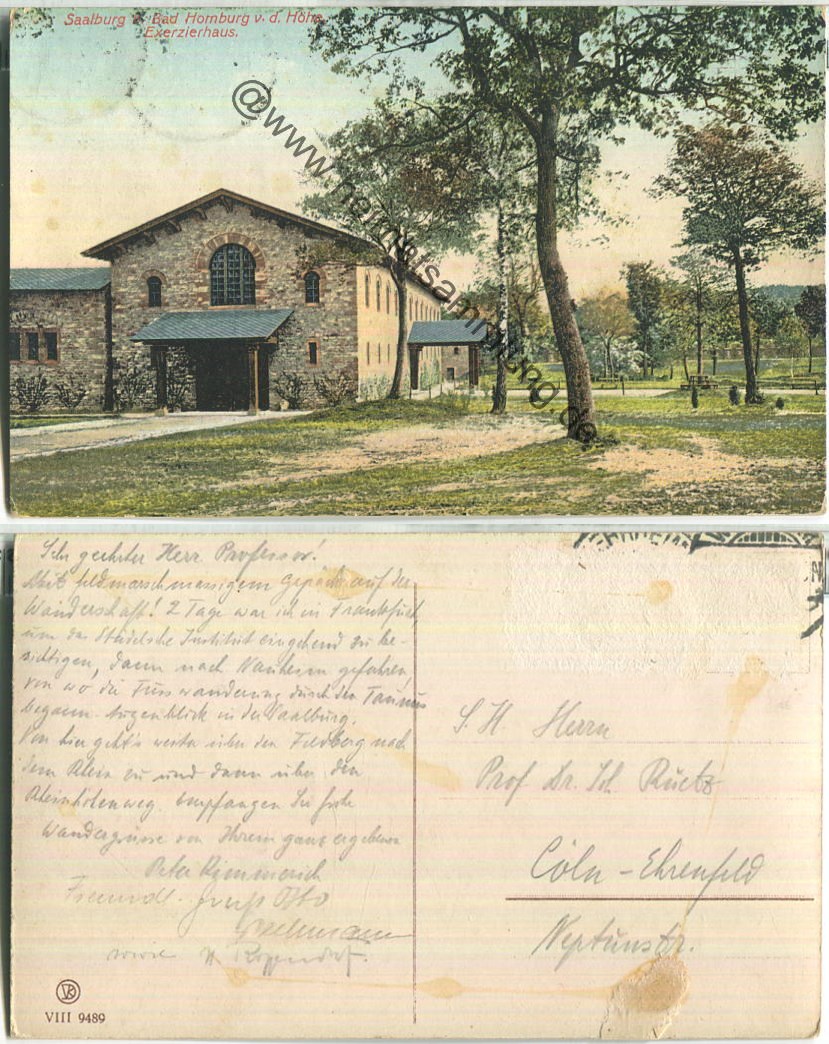 Saalburg b. Bad Homburg v. d. Höhe
Exerzierhaus.
@www.heimatsammlung.de
Sehr geehrter Herr Professor!
Mit feldmarschmässigem Gepäck auf der
Wanderschaft! 2 Tage war ich in Frankfurt
um das Städelsche Institut eingehend zu be-
sichtigen, dann nach Nauheim gefahren,
von wo die Fusswanderung durch den Taunus
begann. Augenblick in der Saalburg.
Von hier geht's weiter über den Feldberg nach
dem Rhein zu und dann über den
Rheinhöhenweg. Empfangen Sie frohe
Wandergrüsse von Ihrem ganz ergebenen
Peter
Freundl. Gruß Otto
sowie
S. H. Herrn
Prof Dr. Joh Ruetz
Cöln - Ehrenfeld
Neptunstr.
VIII 9489